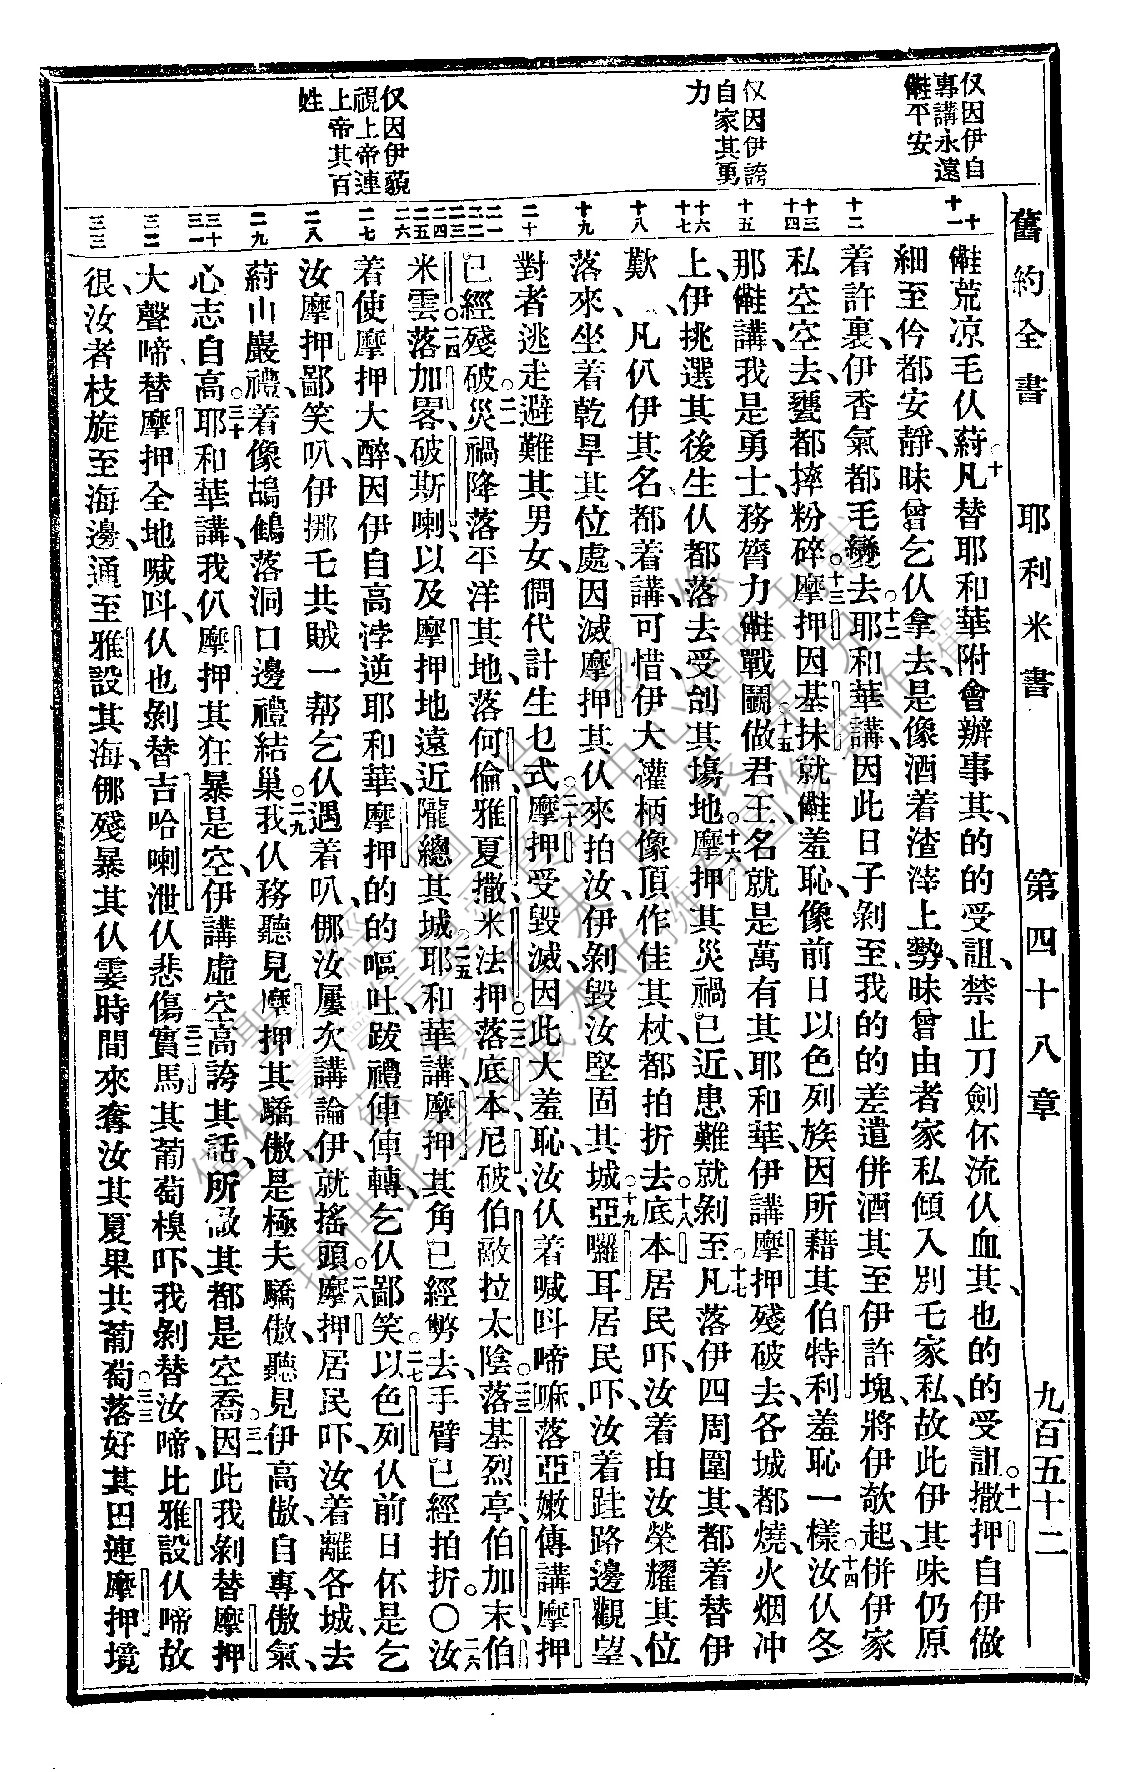 舊約全書 耶利米書 第四十八章 九百五十二
仅因伊自
專講永遠
𠆧平安
仅因伊誇
自家其勇
力
仅因伊藐
視上帝連
上帝其百
姓
荒凉毛仫蒔凡替耶和華附會辦事其的的受詛禁止刀劍伓流仫血其也的的受詛撒押自伊做
細至仱都安靜昧曾乞仫拿去是像酒着渣滓上勢昧曾由者家私傾入別乇家私故此伊其味仍原
着許裏伊香氣都毛變去耶和華講因此日子剝至我的的差遣併酒其至伊許塊將伊欹起併伊家
私空空去甕都摔粉碎摩押因基抹就羞恥像前日以色列族因所藉其伯特利羞恥一樣汝仫冬
那講我是勇士務膂力戰鬭做君王名就是萬有其耶和華伊講摩押殘破去各城都燒火烟冲
上伊挑選其後生仫都落去受刣其塲地摩押其災禍已近患難就剝至凡落伊四周圍其都着替伊
歎凡仈伊其名都着講可惜伊大灌柄像頂作佳其杖都拍折去底本居民吓汝着由汝榮耀其位
落來坐着乾旱其位處因滅摩押其仫來拍汝伊剝毀汝堅固其城亞囉耳居民吓汝着跬路邊觀望
對者逃走避難其男女僴代計生乜式摩押受毀滅因此大羞恥汝仫着喊呌啼嘛落亞嫩傳講摩押
已經殘破災禍降落平洋其地落何倫雅夏撒米法押落底本尼破伯敵拉太陰落基烈亭伯加末伯
米雲落加畧破斯喇以及摩押地遠近隴總其城耶和華講摩押其角已經斃去手臂已經拍折〇汝
着使摩押大醉因伊自高浡逆耶和華摩押的的嘔吐跋禮俥俥轉乞仫鄙笑以色列仫前日伓是乞
汝摩押鄙笑叭伊挪乇共賊一帮乞仫遇着叭㑚汝屢次講論伊就搖頭摩押居民吓汝着離各城去
蒔山巖禮着像鴣鶴落洞口邊禮結巢我仫務聽見摩押其驕傲是極夫驕傲聽見伊高傲自專傲氣
心志自高耶和華講我仈摩押其狂暴是空伊講虛空高誇其話所做其都是空喬因此我剝替摩押
大聲啼替摩押全地喊呌仫也剝替吉哈喇泄仫悲傷實馬其葡萄模吓我剝替汝啼比雅設仫啼故
很汝者枝旋至海邊通至雅設其海㑚殘暴其仫霎時間來奪汝其夏果共葡萄落好其田連摩押境